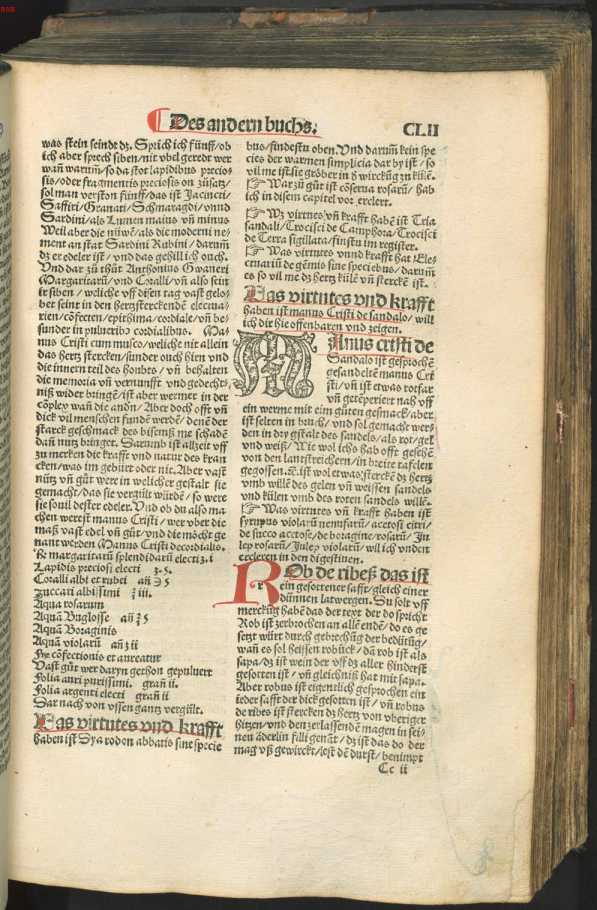 Des andern buchs.
CLII
was stein seindt dz. Sprich ich fünff/ob
ich aber sprech siben/nit vbel geredt wer
wañ warum̃/so da stot lapidibus precio
sis/oder fragmentis preciosis on zůsatz/
sol man verston fünff/das ist Jacincti/
Saffiri/Granati/Schmaragdi/vnnd
Sardini/als Lumen maius vñ minus
Weil aber die nüwē/als die moderni ne-
ment an stat Sardini Rubini/darum̃
dz er edeler ist/vnd das gehill ich ouch.
Vnd dar zů thůt Anthonius Gwaneri
Margaritarū/vnd Coralli/vñ also sein
ir siben/weliche vff disen tag vast gelo-
ber seint in den hertzsterckendē electua-
rien/cōfecten/epithima/cordiale/vñ be-
sunder in pulueribꝰ cordialibus. Ma-
nus Cristi cum musco/weliche nit allein
das hertz stercken/sunder ouch hirn vnd
die innern teil des houbtes/vñ behalten
die memoria vñ vernunfft vnd gedecht-
niß wider bringē/ist aber wermer in der
cōpley wañ die andn̄/Aber doch offt vñ
dick vil menschen funden werdē/denē der
starck geschmack des bisems me schadē
dañ nutz bringet. Darumb ist allzeit vff
zů mercken die krafft vnd natur des kran
cken/was im gebürt oder nit. Aber vast
nütz vñ gůt were in welicher gestalt sie
gemacht/das sie vergült würdē/so were
sie souil dester edeler. Vnd ob du also ma
chen werest manus Cristi/wer vber die
maß vast edel vñ gůt/vnd die möcht ge
nant werden Manus Cristi decordialis.
℞ margaritarū splendidarū electi ʒ i
Lapidis preciosi electi ʒ. s.
Coralli albi et rubei añ ℈ s
zuccari albissimi ℥ iii.
Aqua rosarum
Aqua Buglosse añ ℥ s
Aquā Boraginis
Aquā violarū añ ʒ ii
Fiat cōfectionis et aureatur
Vast gůt wer daryn gethon gepuluert
Folia auri purissimi. grañ ii.
Folia argenti electi grañ ii
Dar nach von vssen gantz vergült.
Das virtutes vnd krafft
haben ist Dya rodon abbatis sine specie
bus/findestu oben. Vnd darum̃ kein spe
cies der warmen simplicia dar by ist/so
vil me ist sie gröber in ð würckūg zů külē.
☞ War zů gůt ist cōserua rosarū/hab
ich in disem capitel vor erclert.
☞ Wz virtues vñ krafft habē ist Tria
sandali/Trocisci de Camphora/Trocisci
de Terra sigillata/finstu im register.
☞ Was virtutes vnnd krafft hat Elec-
ctuariū de gēmis sine speciebus/darum̃
es so vil me dz hertz külē vñ sterckē ist.
Das virtutes vnd krafft
haben ist manus Cristi de sandalo/will
ich dir hie offenbaren vnd zeigen.
MAnus cristi de
Sandalo ist gesprochē
gesandeltē manus Cri
sti/vñ ist etwas rotfar
vñ getēperiert nah vff
ein werme mit eim gůten gesmack/aber
ist selten in bruch/vnd sol gemacht wer-
den in dry gstalt des sandels/als rot/gel
vnd weiß/Wie wol ichs hab offt gesehē
von den lantstreichern/in breite tafelen
gegossen. ꝛc. ist wol etwas sterckē dz hertz
vmb willē des gelen vñ weissen sandels
vnd külen vmb des roten sandels willē.
☞ Was virtutes vñ krafft haben ist
syrupus violarū nenufarū/acetosi citri/
de succo acetose/de boragine/rosarū/Ju
lep rosarū/Juley violarū/wil ich vnden
ercleren in den digestiuen.
ROb de ribeß das ist
ein gesottener safft/gleich einer
dünnen latwergen. Du solt vff
merckūg habē das der text der do spricht
Rob ist zerbrochen an allē endē/do es ge
setzt würt durch gebrechūg der bedütūg/
wañ es sol heissen robūck/dā rob ist als
sapa/dz ist wein der vff dz aller hinderst
gesotten ist/vñ gleichniß hat mit sapa.
Aber robus ist eigentlich gesprochen ein
ieder safft der dick gesotten ist/vñ robus
de ribes ist stercken dz hertz von vberiger
hitzen/vnd den zerlassendē magen in sei-
nen äderlin filli genāt/dz ist das do der
mag vß gewirckt/lest dē durst/benimpt
Cc ii